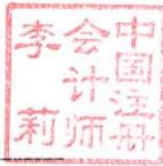 中国注册
会计师
李莉